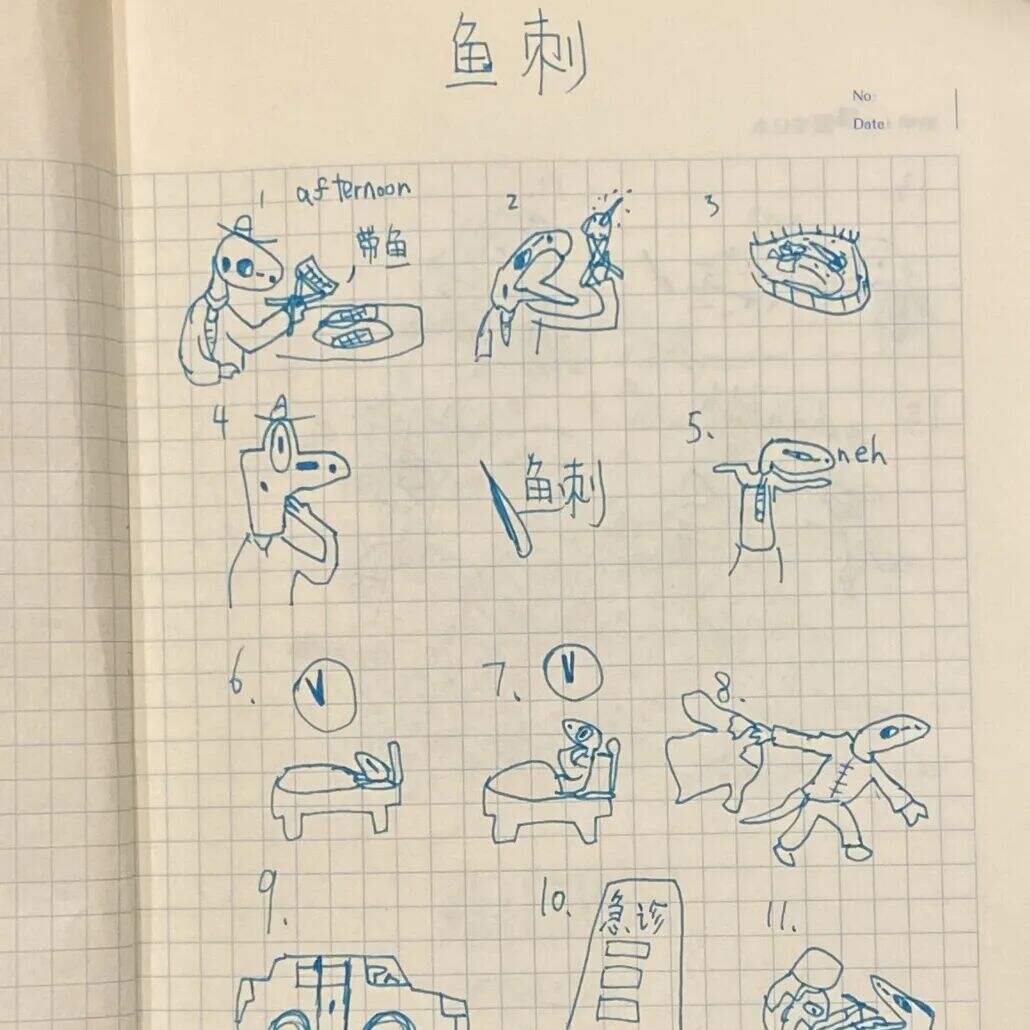 鱼刺
No:
Date:
1 afternoon
带鱼
2
3
4
鱼刺
5.
neh
6.
7.
8.
9.
10.
急诊
11.